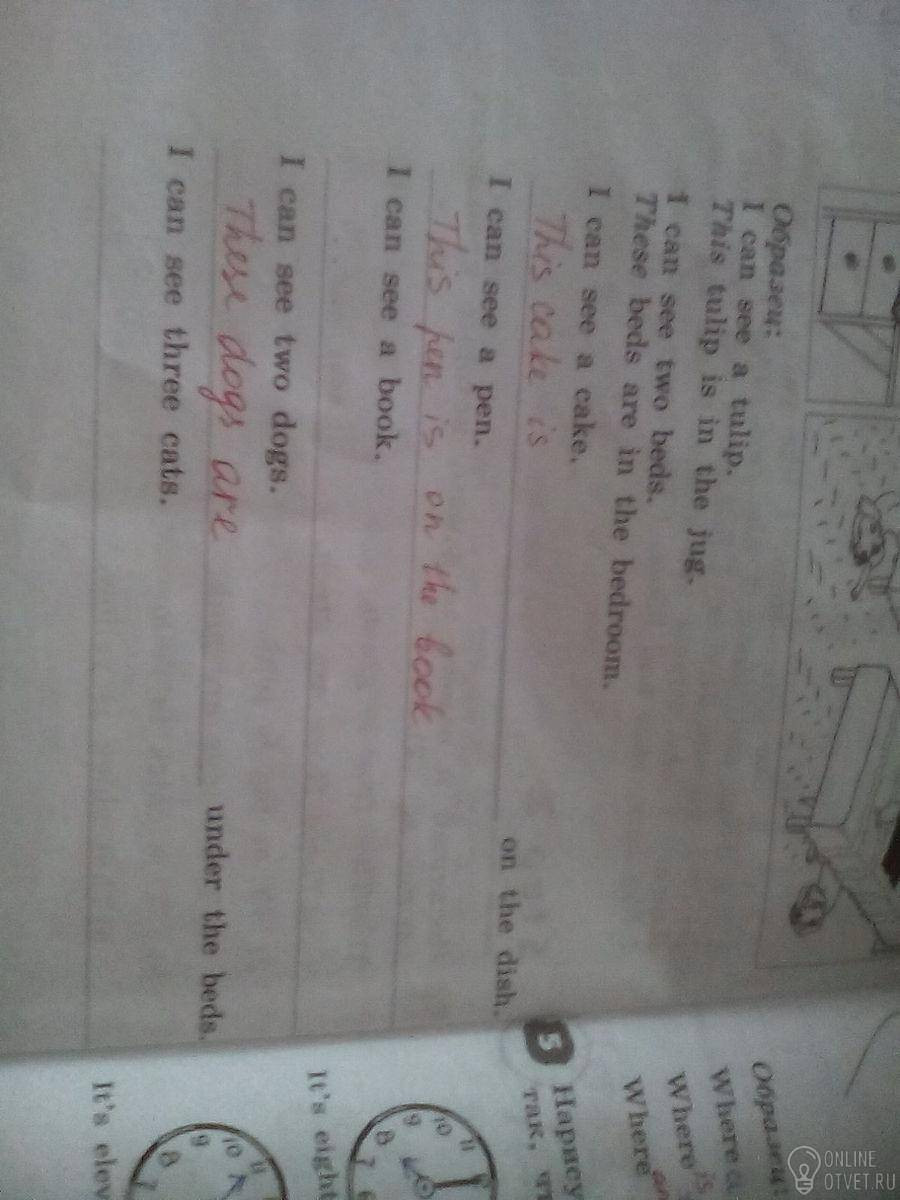 Образец:
I can see a tulip.
This tulip is in the jug.
I can see two beds.
These beds are in the bedroom.
I can see a cake.
This cake is on the dish.
I can see a pen.
This pen is on the book
I can see a book.
I can see two dogs.
These dogs are under the beds.
I can see three cats.
Where
Where is
Where
5
так,
11
10
9
8
7
6
It's eight
11
10
9
8
7
ONLINE
OTVET.RU